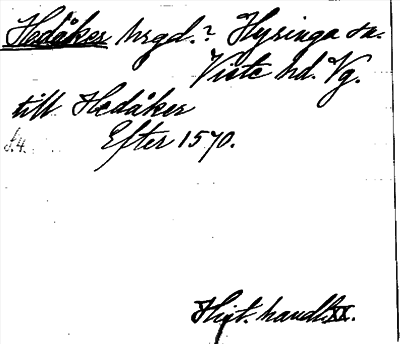 Hedåker hrgd.? Hyringa sn.
Viste hd. Vg.
till Hedåker
Efter 1570.
Hist. handl. XX.